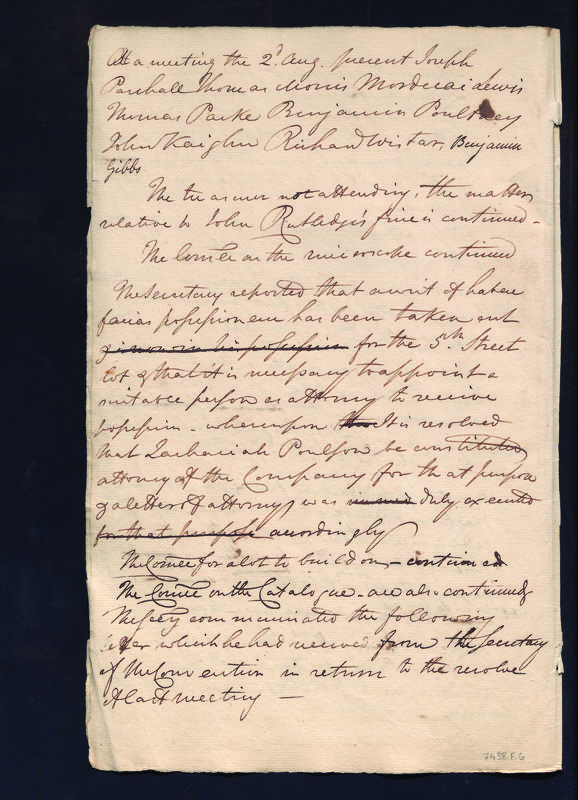 At a meeting the 2d. Aug. present Joseph
Paschall Thomas Morris Mordecai Lewis
Thomas Parke Benjamin Poultney
John Kaighn Richard Wistar, Benjamin
Gibbs
The treasurer not attending, the matter
relative to John Rutledge's fine is continued -
The Comee on the microscope continued
The Secretary reported that a writ of habere
facias possessionem has been taken out
for the 5th. Street
lot & that it is necessary to appoint a
suitable person as attorney to receive
possession - whereupon the It is resolved
that Zachariah Poulson be constituted
attorney of the Company for that purpose
& a letter of attorney was issued duly executed
for that purpose accordingly
The Comee for a lot to build on, - continued
The Comee on the Catalogue - are also continued
The Secy communicated the following
letter which he had received from the Secretary
of the Convention in return to the resolve
at last meeting —
7438.F.6